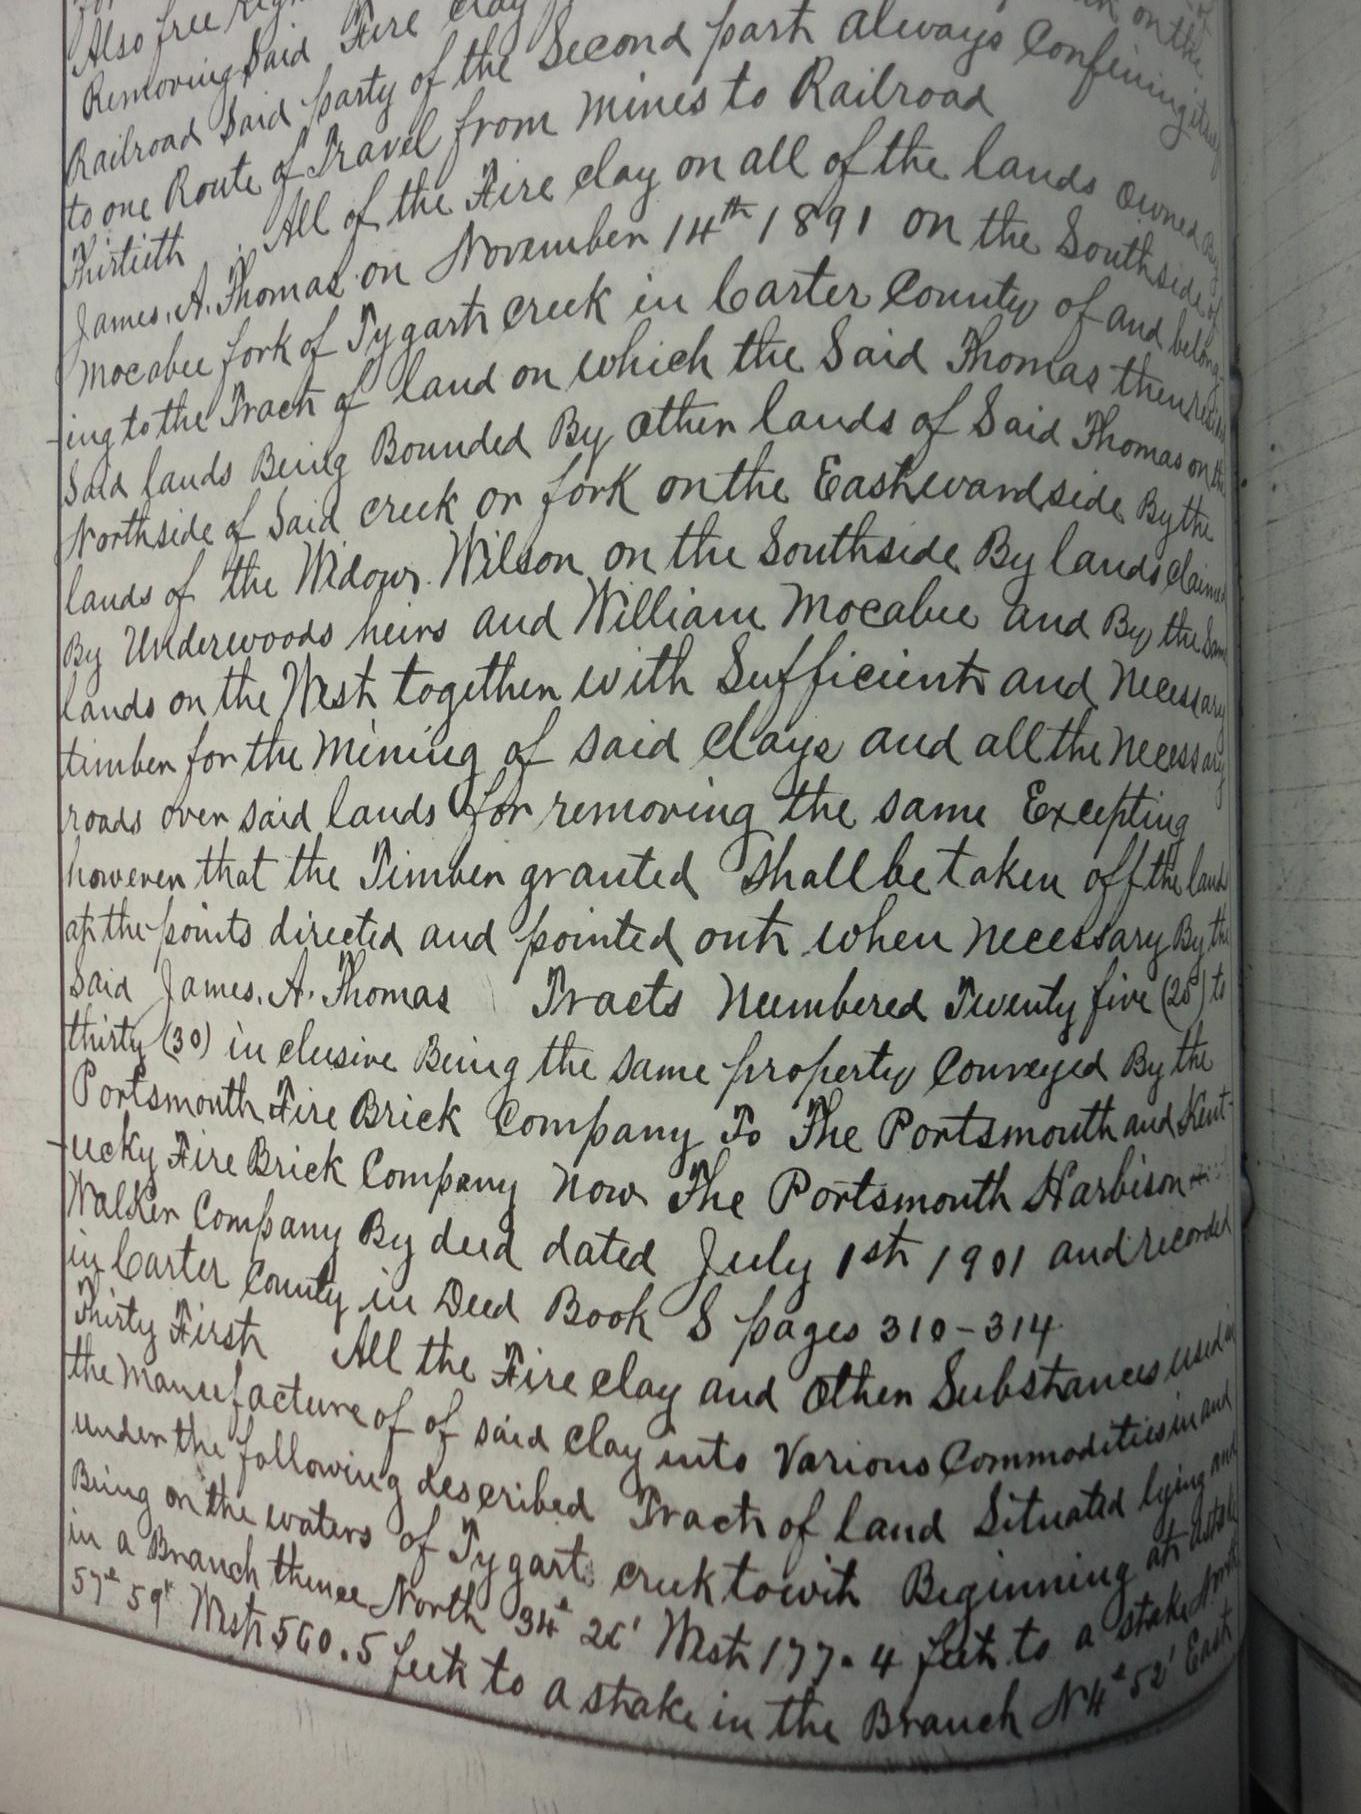 Also free
Removing Said Fire Clay on the
Railroad Said party of the Second part always Confining
to one Route of Travel from mines to Railroad
Thirtieth All of the Fire clay on all of the lands owned By
James. A. Thomas on November 14th 1891 on the Southside of
Mocabee fork of Tygarts creek in Carter County of and belong-
ing to the Tract of land on which the Said Thomas then
Said lands Being Bounded By other lands of Said Thomas on the
Northside of Said creek or fork on the Eastwardside By the
lands of the Widow Wilson on the Southside By lands claimed
By Underwoods heirs and William Mocabee and By the Same
lands on the West together with Sufficient and Necessary
timber for the Mining of said clays and all the Necessary
roads over said lands for removing the same Excepting
however that the Timber granted shall be taken off the land
at the points directed and pointed out when necessary By the
Said James. A. Thomas Tracts Neumbered Twenty five (25) to
thirty (30) inclusive Being the same property Conveyed By the
Portsmouth Fire Brick Company To The Portsmouth and Kent-
ucky Fire Brick Company Now The Portsmouth Harbison
Walker Company By deed dated July 1st 1901 and recorded
in Carter County in Deed Book 8 pages 310-314
Thirty First All the Fire clay and other Substances used in
the manufacture of of said clay into Various Commodities in and
under the following described Tract of land Situated lying and
Being on the waters of Tygarts creek towit Beginning at a stake
in a Branch thence North 34° 26' West 177.4 feet to a stake North
57° 59' West 560.5 feet to a stake in the Branch N 4° 52' East